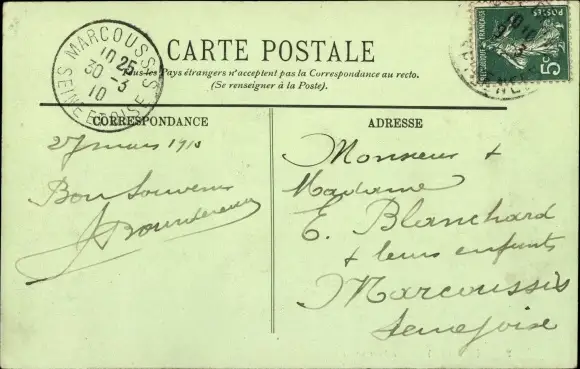 MARCOUSSIS
10 25
30 - 3
10
SEINE ET OISE
CARTE POSTALE
Tous les Pays étrangers n'acceptent pas la Correspondance au recto.
(Se renseigner à la Poste).
RÉPUBLIQUE FRANÇAISE
POSTES
5c
CORRESPONDANCE
27 mars 1910
Bon Souvenir
ADRESSE
Monsieur &
Madame
E. Blanchard
& leurs enfants
Marcoussis